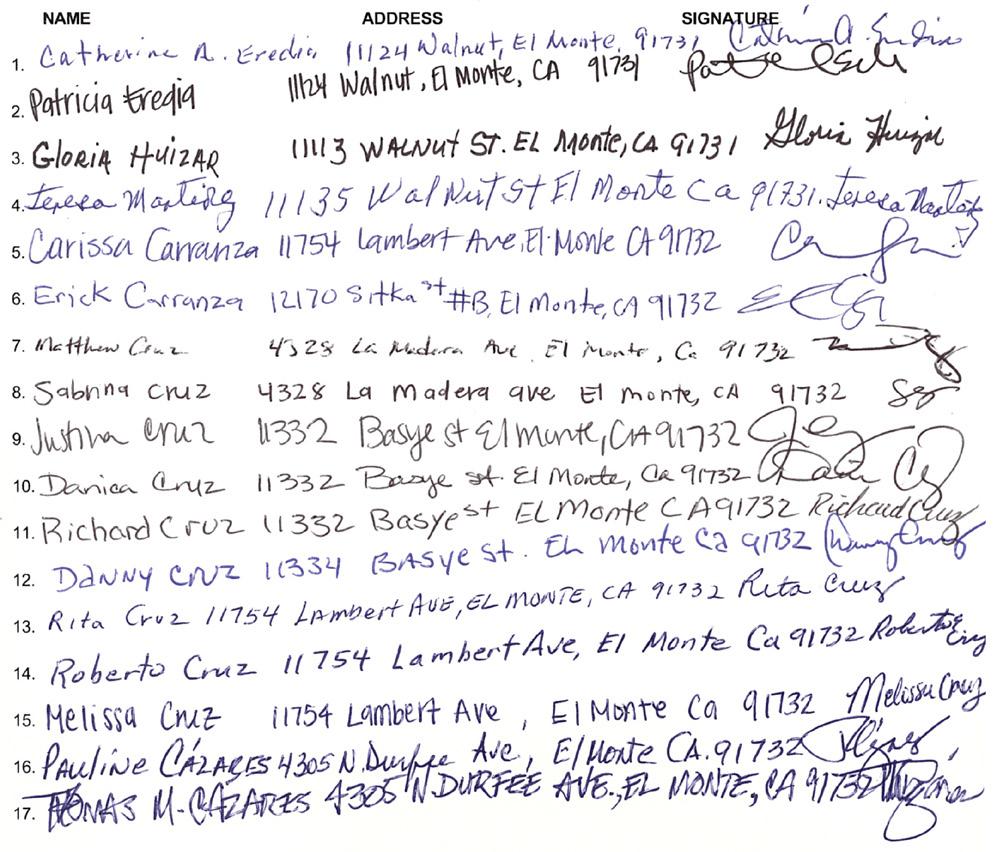 NAME ADDRESS SIGNATURE
1. Catherine A. Eredia 11124 Walnut, El Monte, 91731 Catherine A. Eredia
2. Patricia Eredia 11124 Walnut, El Monte, CA 91731
3. GLORIA HUIZAR 11113 WALNUT ST. EL MONTE, CA 91731 Gloria Huizar
4. Teresa 11135 WalNut St El Monte Ca 91731. Teresa
5. Carissa Carranza 11754 Lambert Ave, El Monte CA 91732
6. Erick Carranza 12170 Sitka st #B, El Monte, CA 91732
7. Matthew Cruz 4328 La Madera Ave El Monte, Ca 91732
8. Sabrina Cruz 4328 La Madera ave El Monte, CA 91732
9. Justina Cruz 11332 Basye st El Monte, CA 91732
10. Danica Cruz 11332 Basye st. El Monte, Ca 91732
11. Richard Cruz 11332 Basye st EL Monte CA 91732 Richard Cruz
12. DANNY CRUZ 11334 BASye st. EL Monte Ca 91732 Danny Cruz
13. Rita Cruz 11754 LAMBERT AVE, EL MONTE, CA 91732 Rita Cruz
14. Roberto Cruz 11754 Lambert Ave, El Monte Ca 91732 Roberto Cruz
15. Melissa Cruz 11754 Lambert Ave, El Monte Ca 91732 Melissa Cruz
16. PAuliNe CÁZARES 4305 N. Durfee Ave, El Monte CA. 91732
17. THOMAS M. CÁZARES 4305 N. DURFEE AVE., EL MONTE, CA 91732